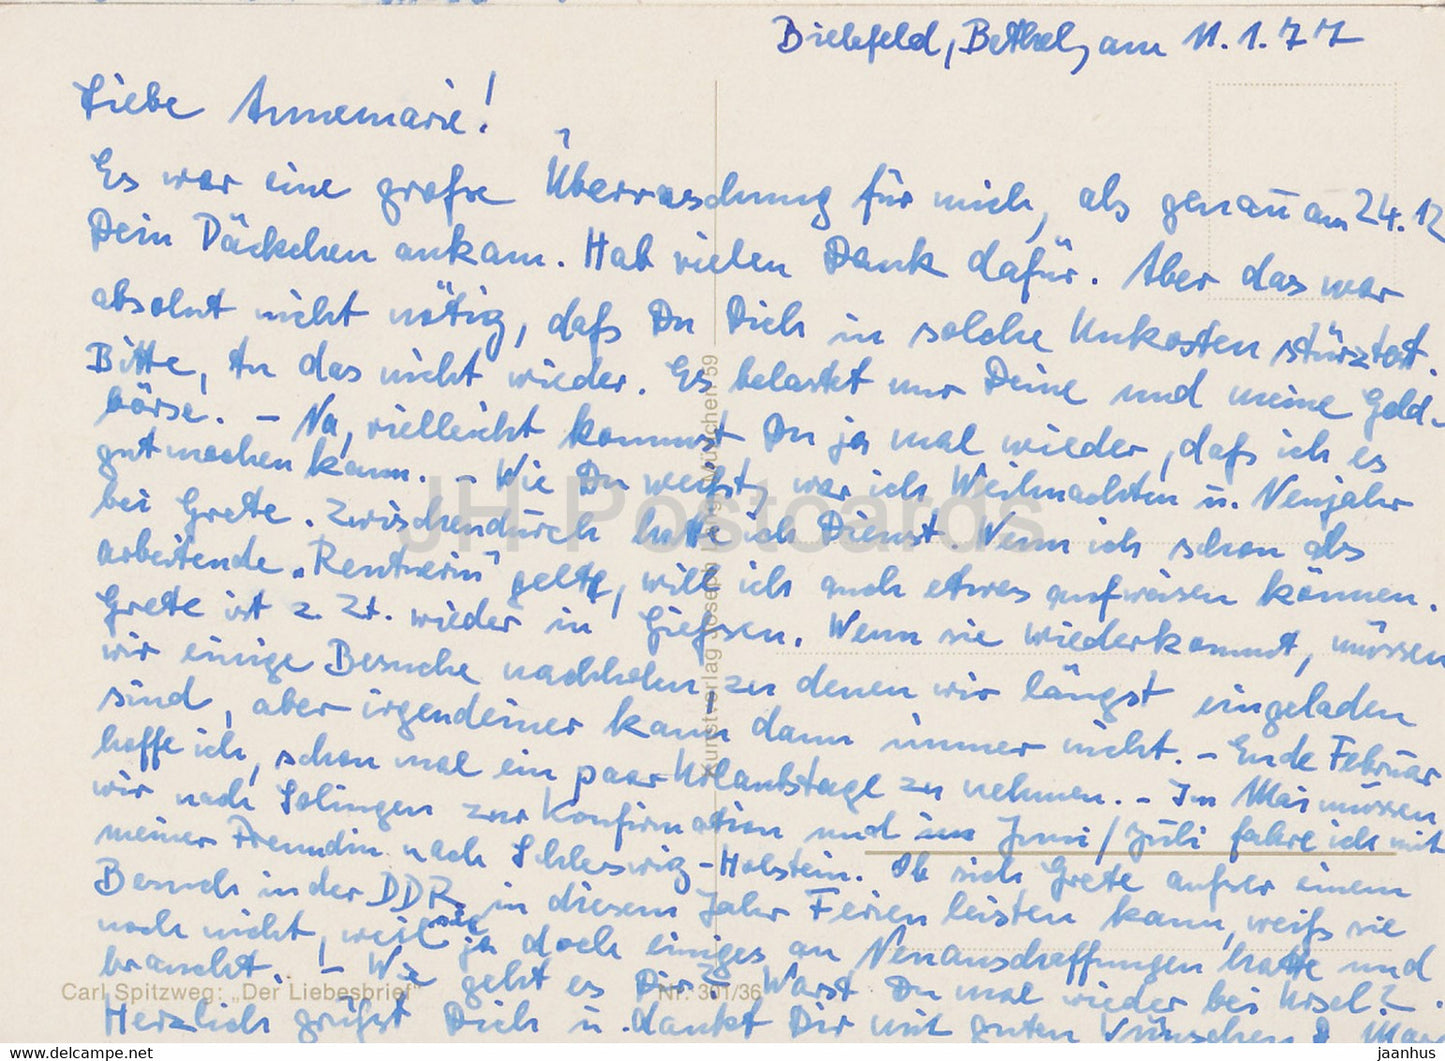 Bielefeld, Bethel, am 11.1.77
Liebe Annemarie!
Es war eine große Überraschung für mich, als genau am 24.12
Dein Päckchen ankam. Hab vielen Dank dafür. Aber das war
absolut nicht nötig, daß Du Dich in solche Unkosten stürztest.
Bitte, tu das nicht wieder. Es belastet nur Deine und meine Geld-
börse. – Na, vielleicht kommst Du ja mal wieder, daß ich es
gutmachen kann. – Wie Du weißt, war ich Weihnachten u. Neujahr
bei Grete. Zwischendurch hatte ich Dienst. Wenn ich schon als
arbeitende „Rentnerin" gelte, will ich auch etwas aufweisen können.
Grete ist z Zt. wieder in Gießen. Wenn sie wiederkommt, müssen
wir einige Besuche nachholen, zu denen wir längst eingeladen
sind, aber irgendeiner kann dann immer nicht. – Ende Februar
hoffe ich, schon mal ein paar Urlaubstage zu nehmen. – Im Mai müssen
wir nach Solingen zur Konfirmation und im Juni/Juli fahre ich mit
meiner Freundin nach Schleswig-Holstein. Ob sich Grete außer einem
Besuch in der DDR, in diesem Jahr Ferien leisten kann, weiß sie
noch nicht, weil sie ja doch einiges an Neuanschaffungen hatte und
braucht. – Wie geht es Dir? Warst Du mal wieder bei Ursel?
Herzlich grüßt Dich u. dankt Dir mit guten Wünschen D.
Kunstverlag Joseph Lang, München 59
Carl Spitzweg: „Der Liebesbrief"
Nr. 301/36
JH Postcards
www.hippostcard.com
jaanhus